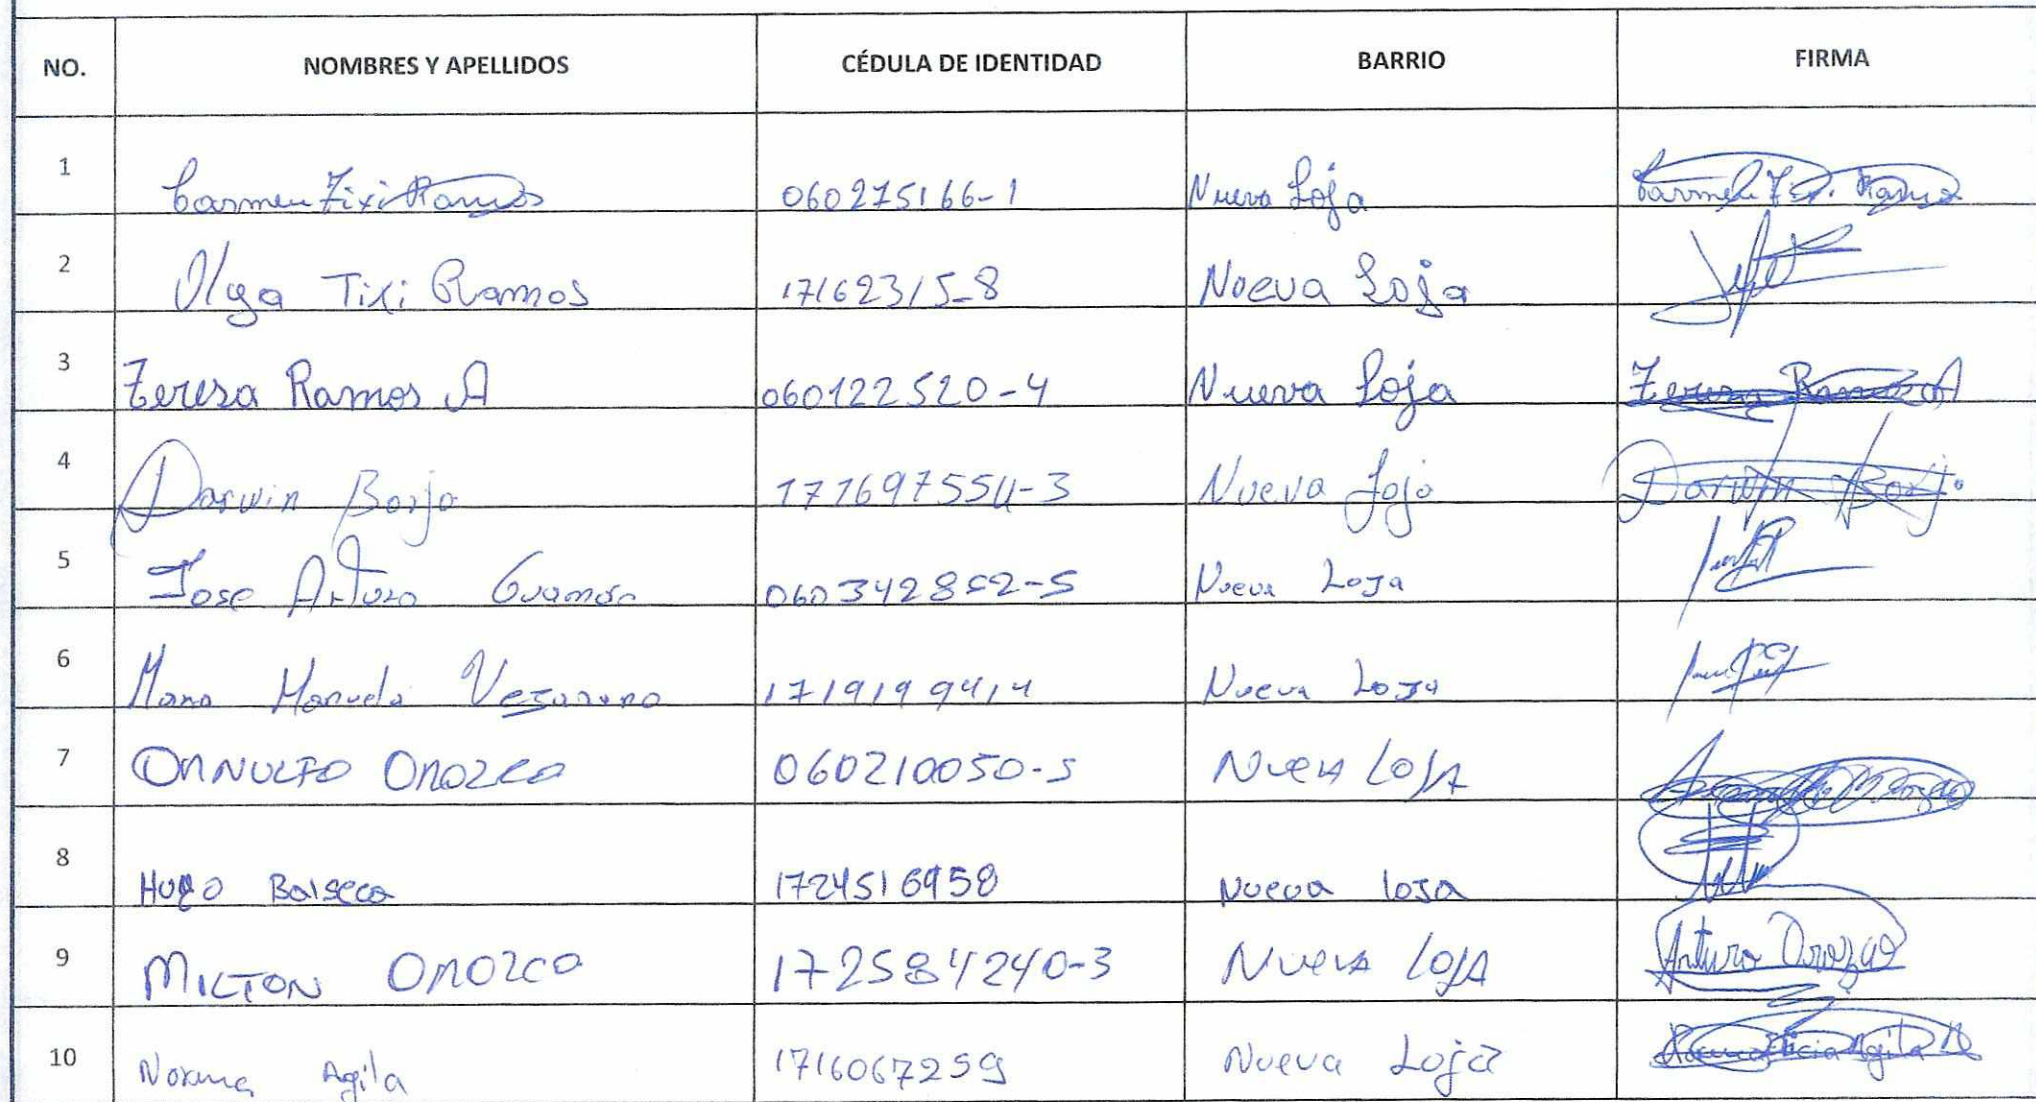 NO. NOMBRES Y APELLIDOS CÉDULA DE IDENTIDAD BARRIO FIRMA
1 Carmen Tixi Ramos 060275166-1 Nueva Loja Carmen Tixi Ramos
2 Olga Tixi Ramos 17162315-8 Nueva Loja
3 Teresa Ramos A 060122520-4 Nueva Loja Teresa Ramos A
4 Darwin Borja 171697554-3 Nueva Loja Darwin Borja
5 Jose Arturo Guamán Nueva Loja
6 Manuela 1719199414 Nueva Loja
7 ORNULFO OROZCO 060210050-5 NUEVA LOJA
8 HUGO Balseca 1724516950 Nueva loja
9 MILTON OROZCO 172584240-3 NUEVA LOJA Arturo Orozco
10 Norma Agila 1716067259 Nueva Loja